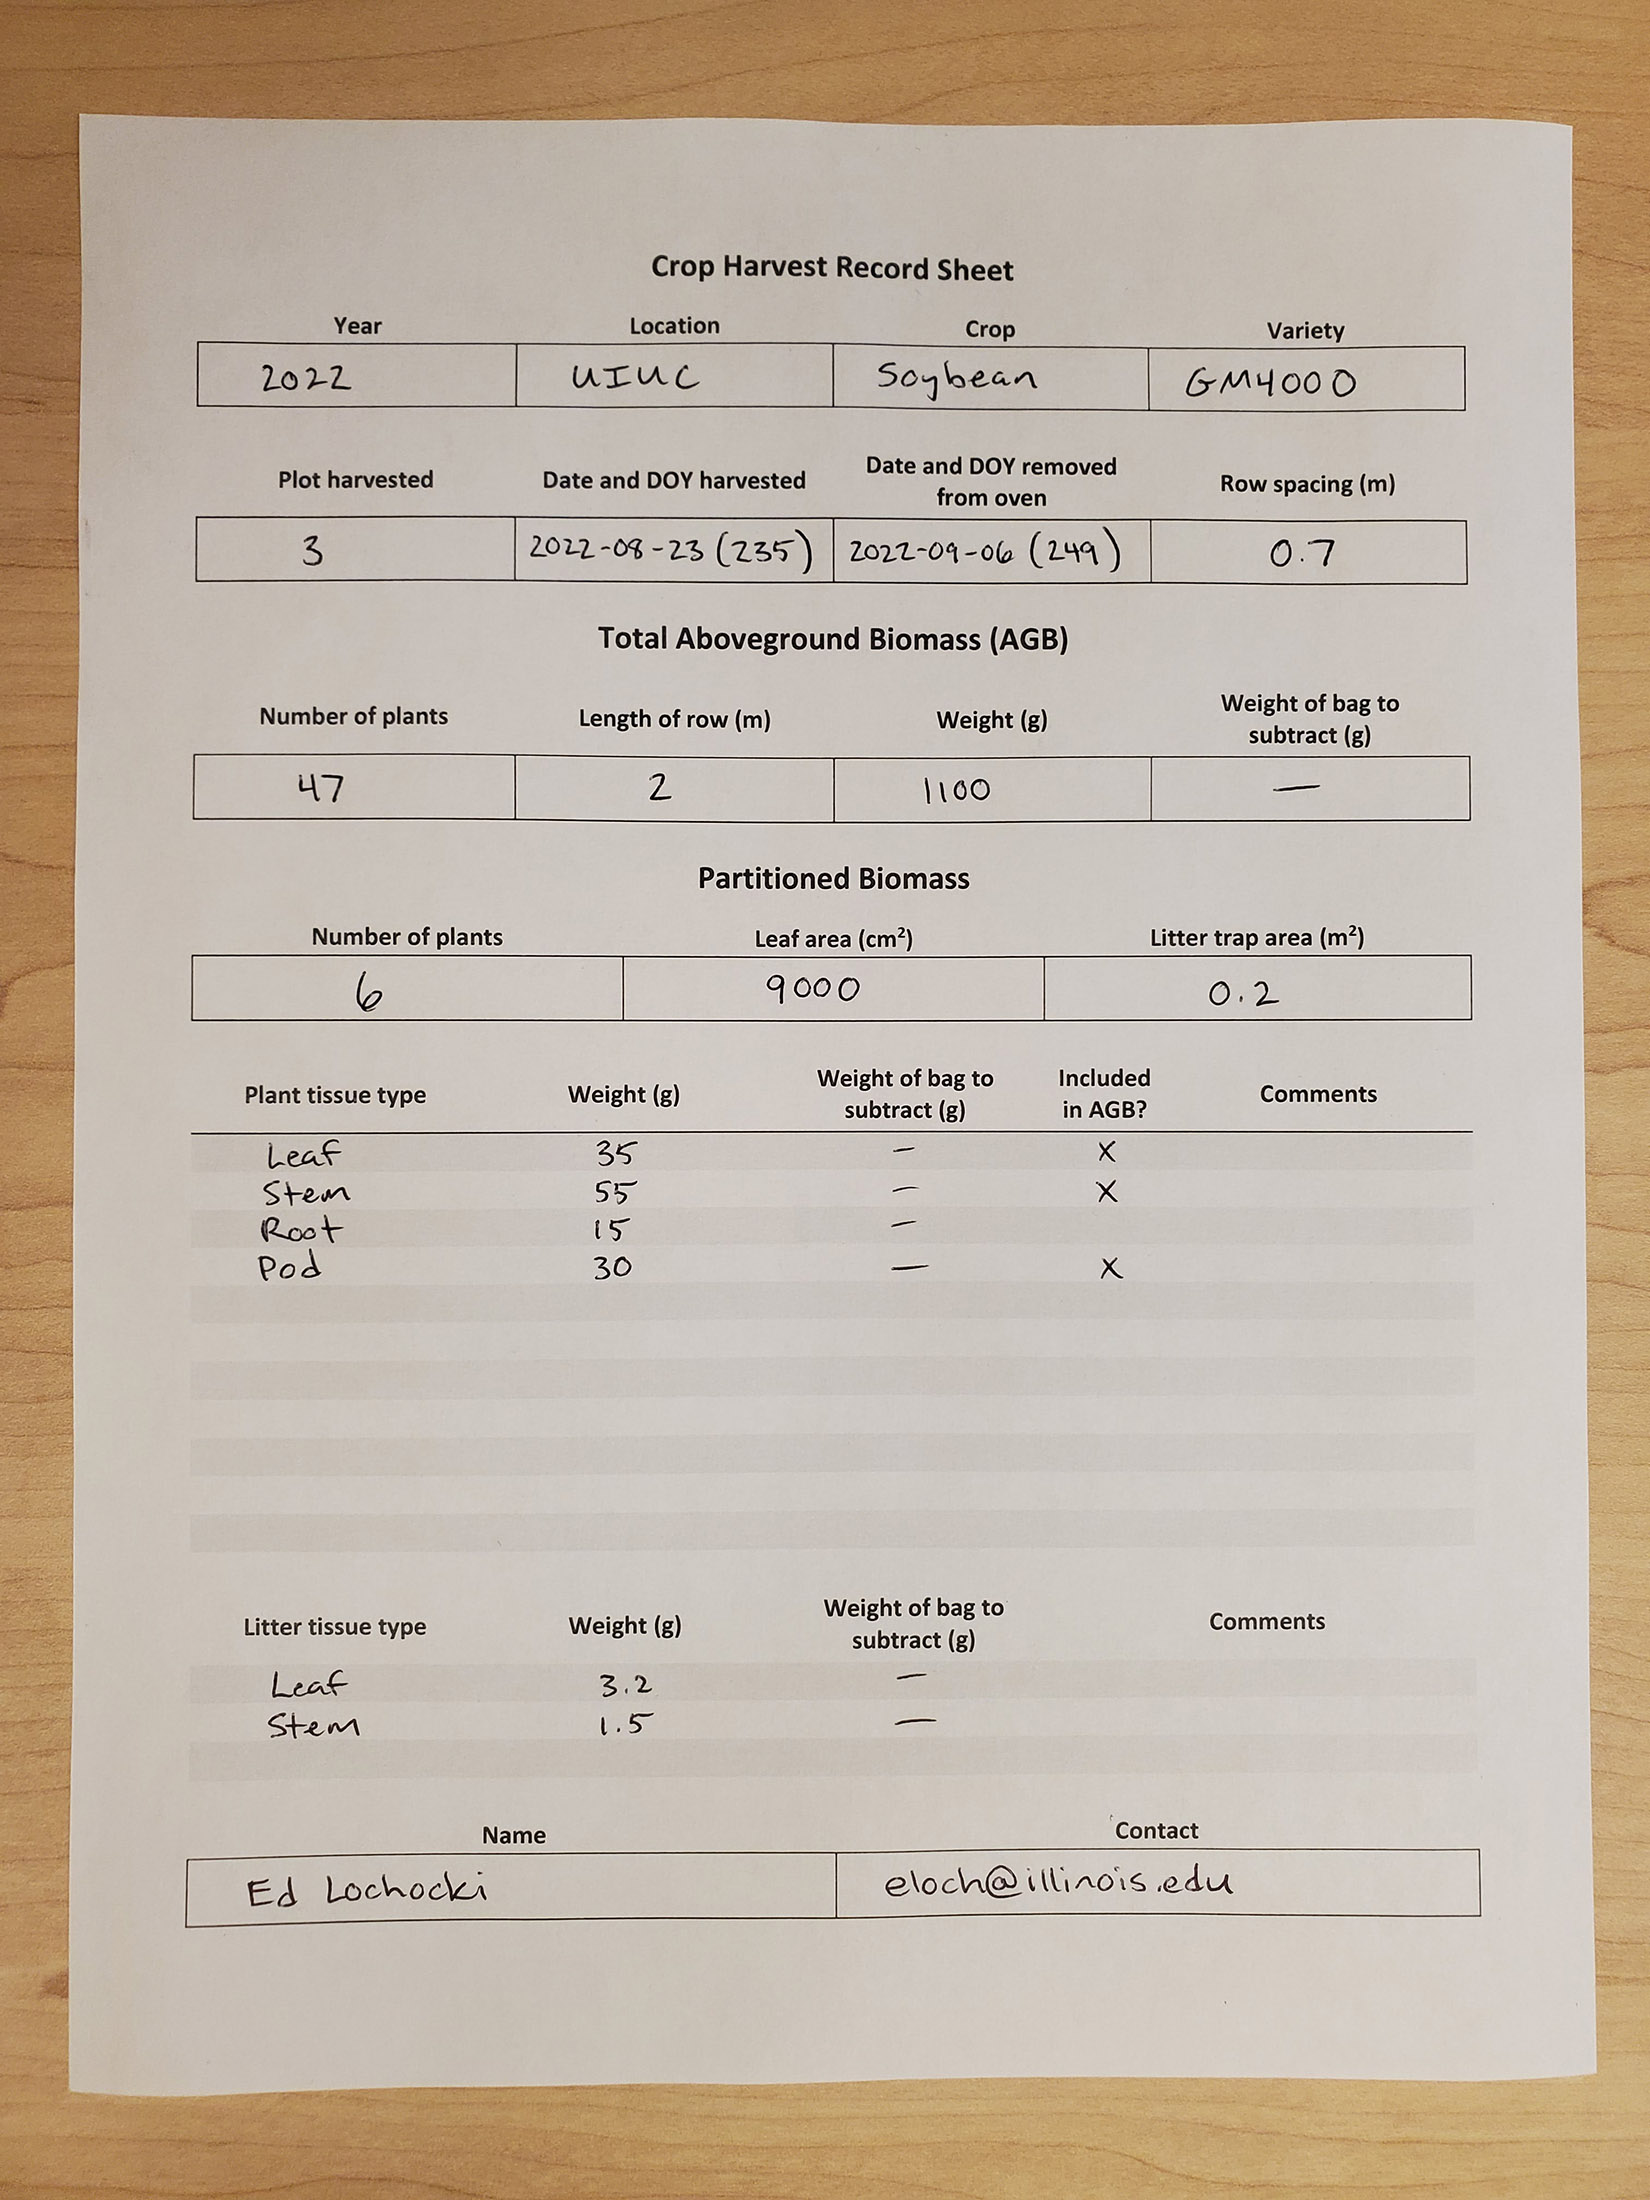 Crop Harvest Record Sheet
Year Location Crop Variety
2022 UIUC Soybean GM4000
Plot harvested Date and DOY harvested Date and DOY removed from oven Row spacing (m)
3 2022-08-23 (235) 2022-09-06 (249) 0.7
Total Aboveground Biomass (AGB)
Number of plants Length of row (m) Weight (g) Weight of bag to subtract (g)
47 2 1100 —
Partitioned Biomass
Number of plants Leaf area (cm²) Litter trap area (m²)
6 9000 0.2
Plant tissue type Weight (g) Weight of bag to subtract (g) Included in AGB? Comments
Leaf 35 — X
Stem 55 — X
Root 15 —
Pod 30 — X
Litter tissue type Weight (g) Weight of bag to subtract (g) Comments
Leaf 3.2 —
Stem 1.5 —
Name Contact
Ed Lochocki eloch@illinois.edu